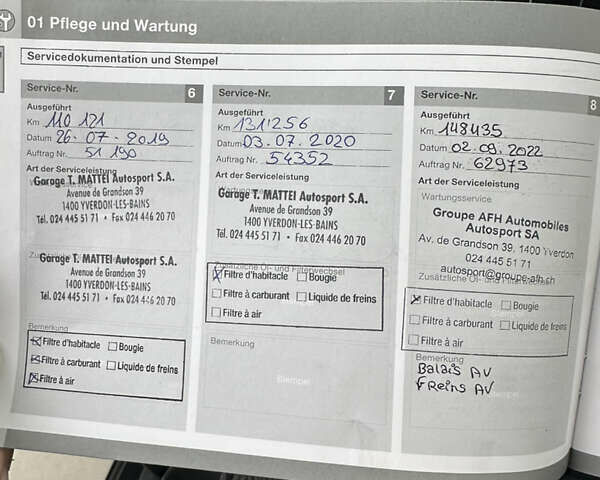 01 Pflege und Wartung
Servicedokumentation und Stempel
Service-Nr. 6
Ausgeführt
Km 110 121
Datum 26-07-2019
Auftrag Nr. 51 190
Art der Serviceleistung
Garage T. MATTEI Autosport S.A.
Avenue de Grandson 39
1400 YVERDON-LES-BAINS
Tél. 024 445 51 71 • Fax 024 446 20 70
Garage T. MATTEI Autosport S.A.
Avenue de Grandson 39
1400 YVERDON-LES-BAINS
Tél. 024 445 51 71 • Fax 024 446 20 70
Bemerkung
Filtre d'habitacle Bougie
Filtre à carburant Liquide de freins
Filtre à air
Service-Nr. 7
Ausgeführt
Km 131'256
Datum 03.07.2020
Auftrag Nr. 54352
Art der Serviceleistung
Wartungsservice
Garage T. MATTEI Autosport S.A.
Avenue de Grandson 39
1400 YVERDON-LES-BAINS
Tél. 024 445 51 71 • Fax 024 446 20 70
Zusätzliche Öl- und Filterwechsel
Filtre d'habitacle Bougie
Filtre à carburant Liquide de freins
Filtre à air
Bemerkung
Stempel
Service-Nr. 8
Ausgeführt
Km 148435
Datum 02.09.2022
Auftrag Nr. 62973
Art der Serviceleistung
Wartungsservice
Groupe AFH Automobiles
Autosport SA
Av. de Grandson 39, 1400 Yverdon
024 445 51 71
autosport@groupe-afh.ch
Zusätzliche Öl- und Filterwechsel
Filtre d'habitacle Bougie
Filtre à carburant Liquide de freins
Filtre à air
Bemerkung
Balais AV
Freins AV
Stempel